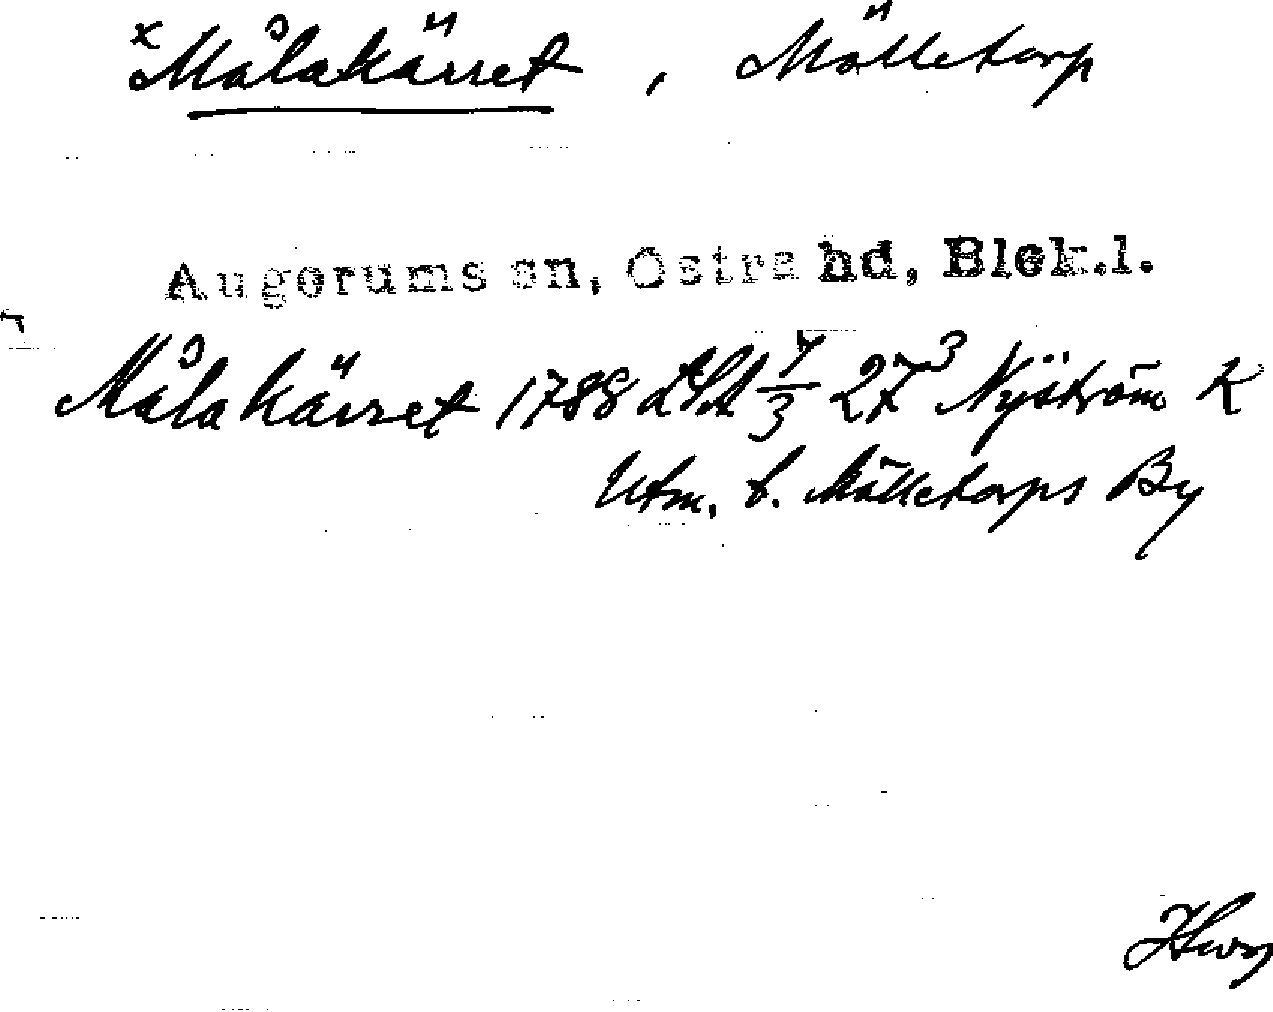 x Målakärret, Mölletorp
Augerums sn, Östra hd, Blek.l.
Målakärret 1788 LSA 7/3 27³ Nyström K
Utm. t. Mölletorps By